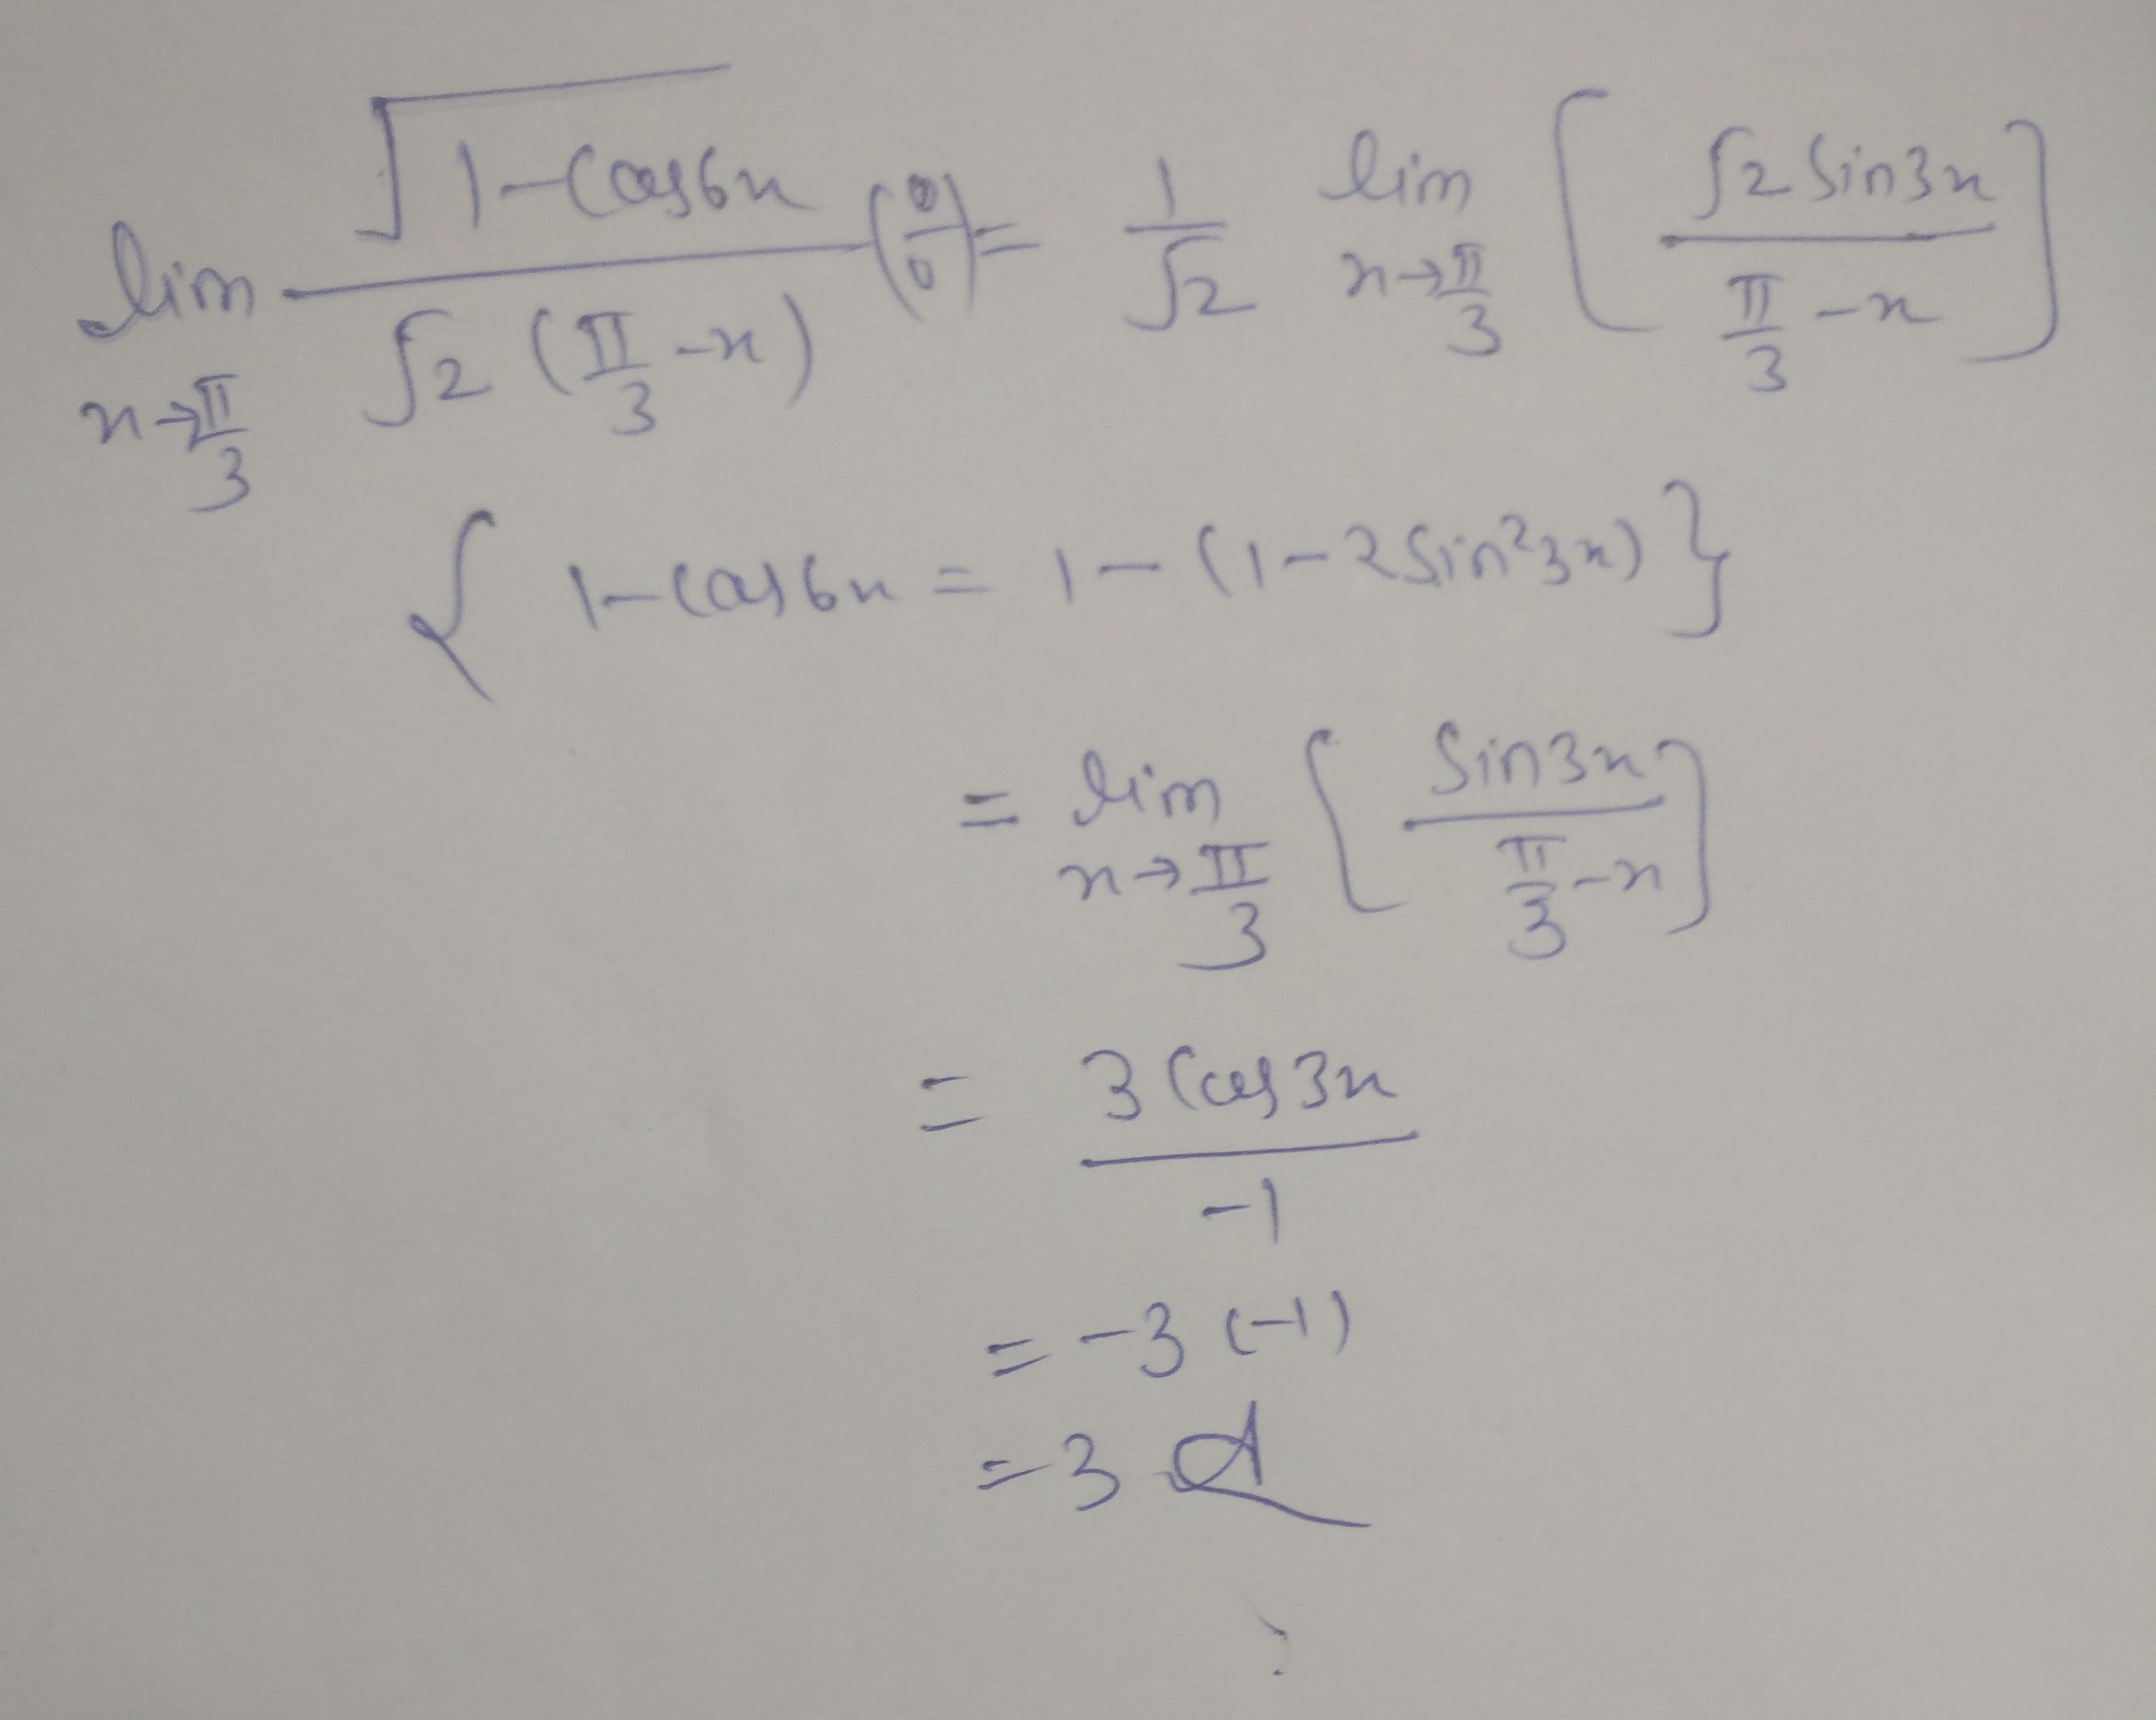 lim x→π/3 √(1-Cos6x) / √2 (π/3 -x) (0/0) = 1/√2 lim x→π/3 [√2 Sin3x / π/3 -x]
{ 1-Cos6x = 1-(1-2Sin²3x) }
= lim x→π/3 [Sin3x / π/3 -x]
= 3 Cos3x / -1
= -3 (-1)
= 3